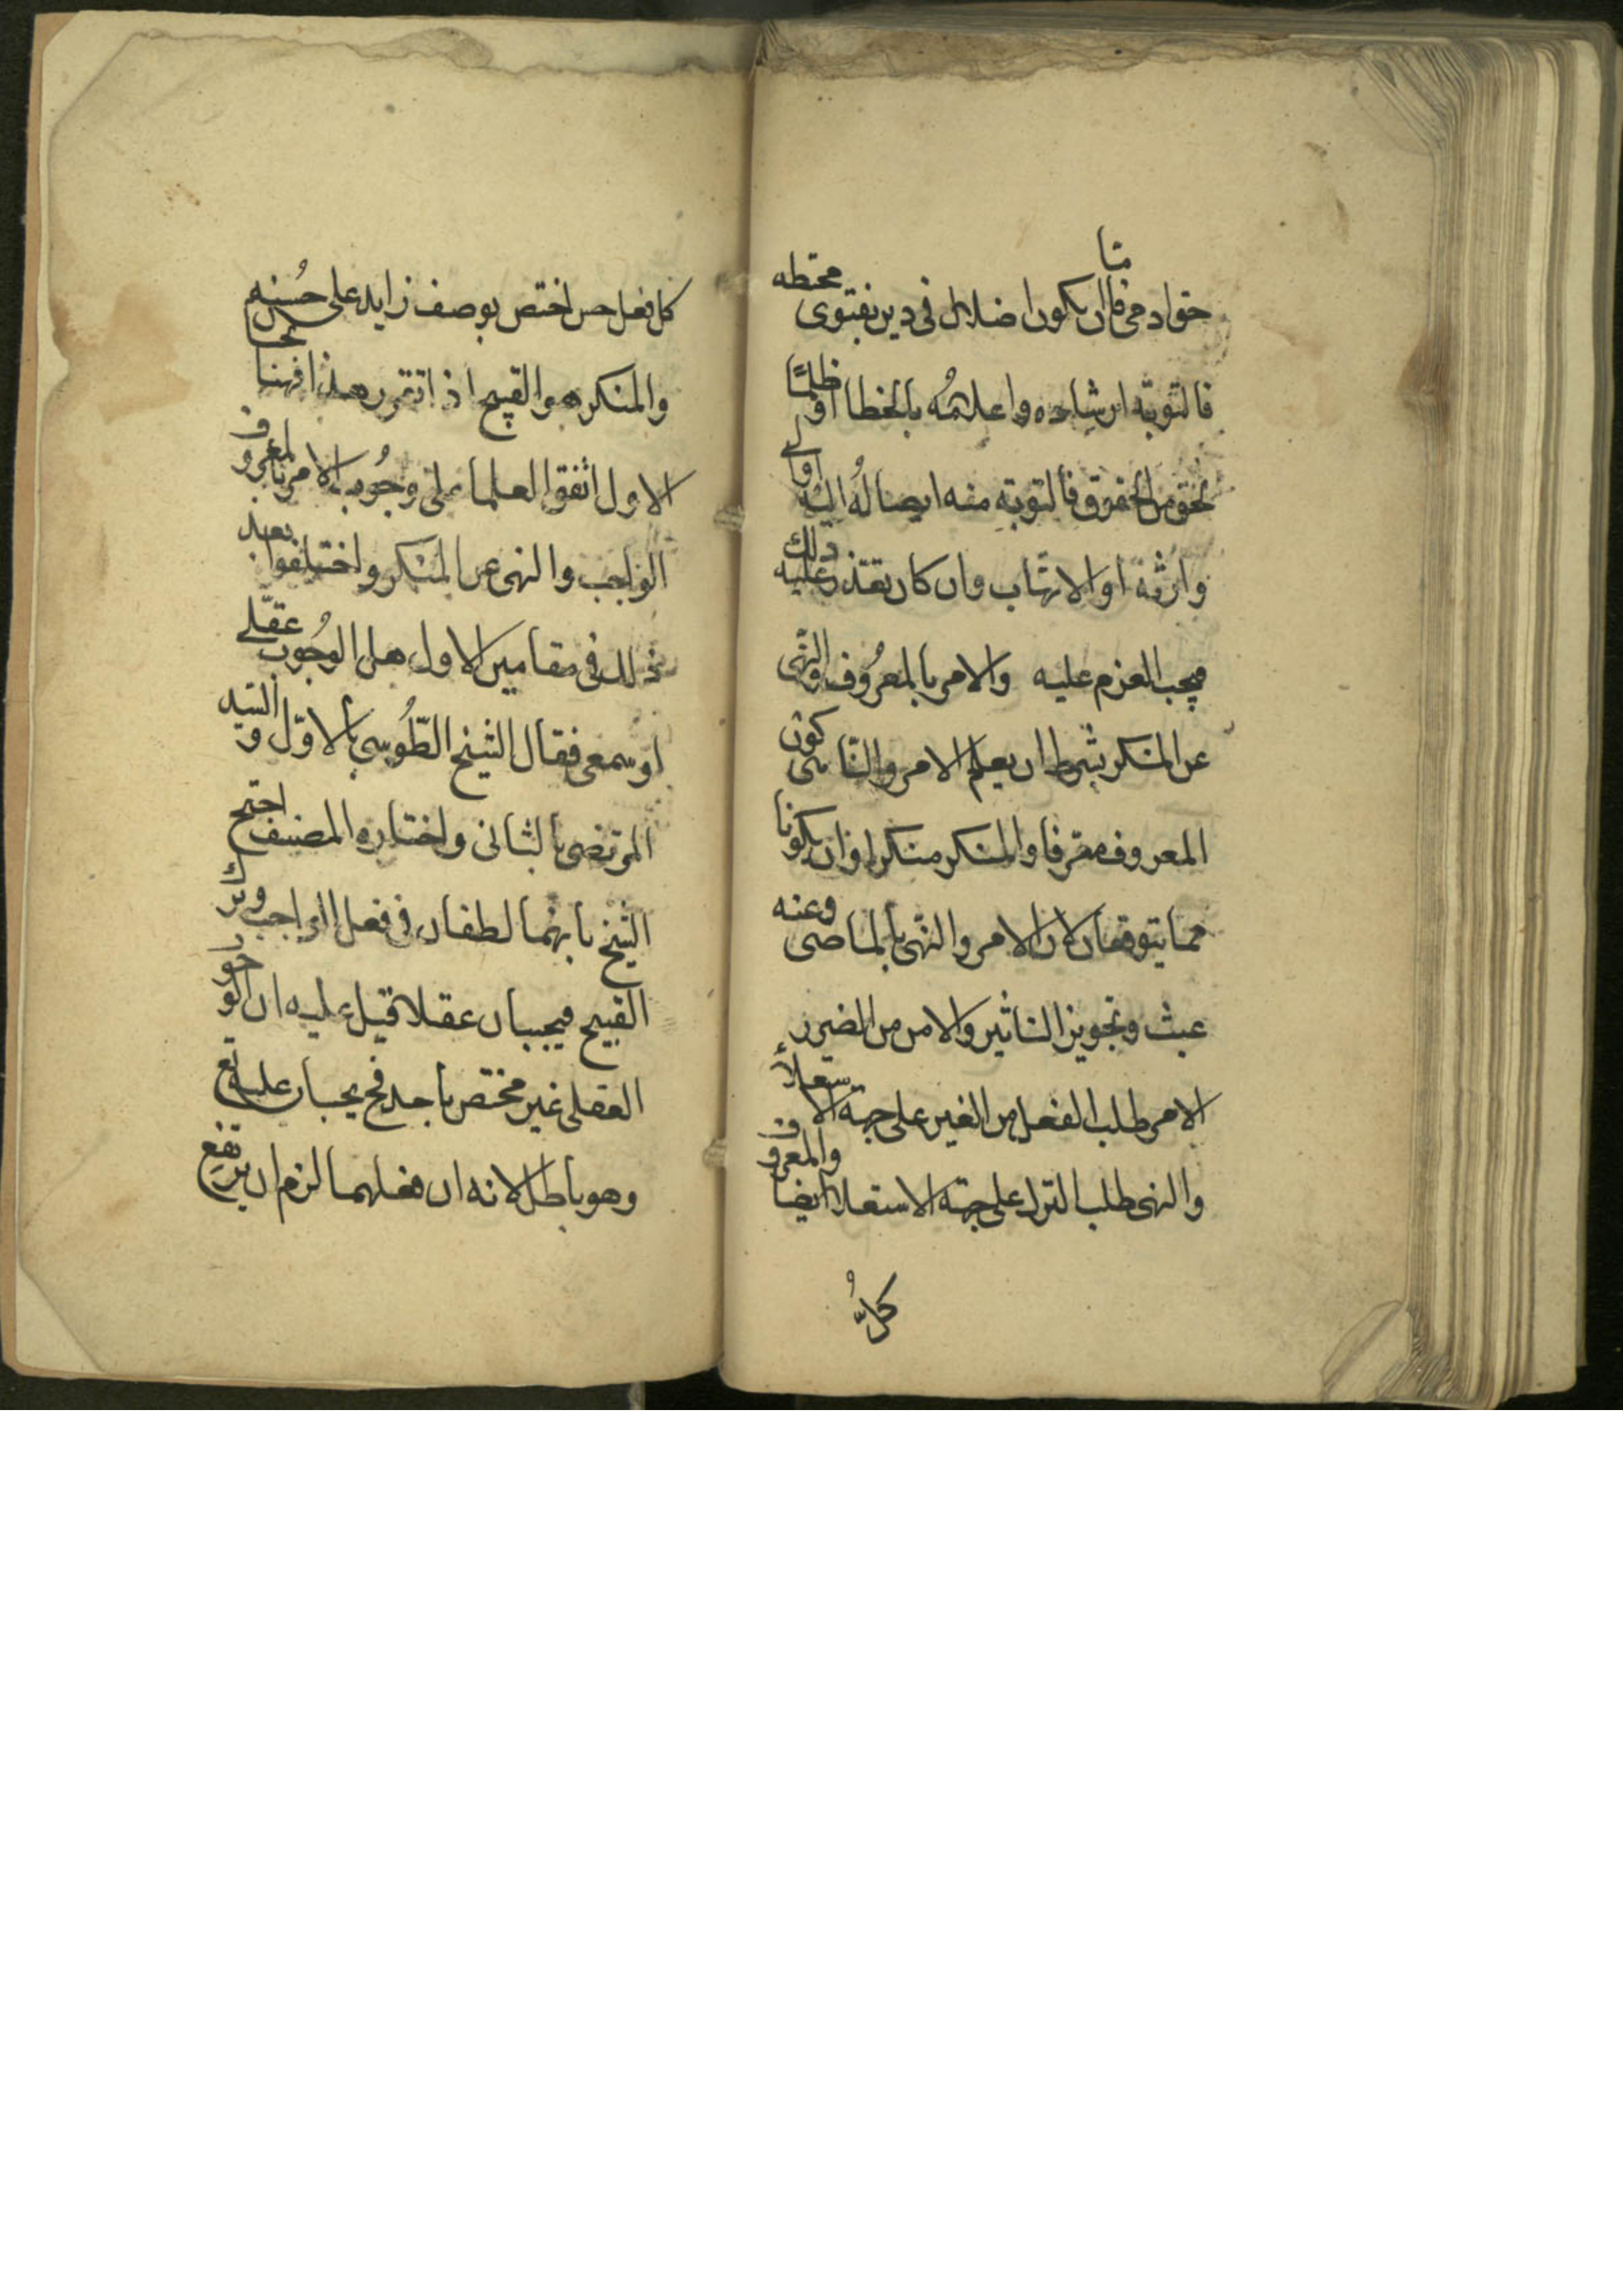 حق ادمی فاما ان يكون اضلال فی دين بفتوی مخطه
فالتوبة ارشاده واعلامُه بالخطا او ظلمًا
لحق من الحقوق فالتوبة منه ايصالُه اليه او الی
وارثه او الاتهاب وان كان تعذر عليه ذلك
فيجب العزم عليه والامر بالمعرُوف والنّهی
عن المنكر بشرط ان يعلم الامر والنّاهی كون
المعروف معرفا والمنكر منكرا وان يكونا
مما يتوقعان لان الامر والنّهی بالماضی وعنه
عبث وتجويز التاثير والامن من الضرر
الامر طلب الفعل من الغير علی جهة الاستعلاء
والنهی طلب الترك علی جهة الاستعلا ايضا والمعروف
كلُّ
كل فعل حسن اختص بوصف زايد علی حُسنه
والمنكر هو القبيح اذا تقرر هذا فهنا بحث
الاول اتفق العلما علی وجُوب الامر بالمعروف
الواجب والنهی عن المنكر واختلفوا بعد
ذلك فی مقامين الاول هل الوجُوب عقلی
او سمعی فقال الشيخ الطّوُسی بالاوّل والسّيد
المرتضی بالثانی واختاره المصنف احتج
الشيخ بانهما لطفان فی فعل الواجب وترك
القبيح فيجبان عقلا قيل عليه ان الوجوب
العقلی غير مختص باحد فح يجبان عليه تع
وهو باطل لانه ان فعلهما لزم ان يرتفع